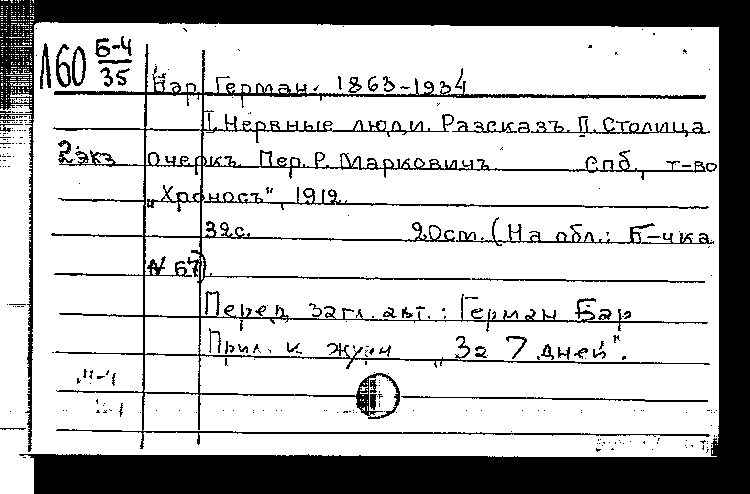 Л60 Б-4
35
Бар, Герман, 1863-1934
I. Нервные люди. Разсказъ. II. Столица
2 экз очеркъ Пер. Р. Марковичъ Спб., т-во
„Хроносъ", 1912.
32с. 20см. (На обл.: Б-чка
№ 67).
Перед загл. авт.: Герман Бар
Прил. к журн „За 7 дней".